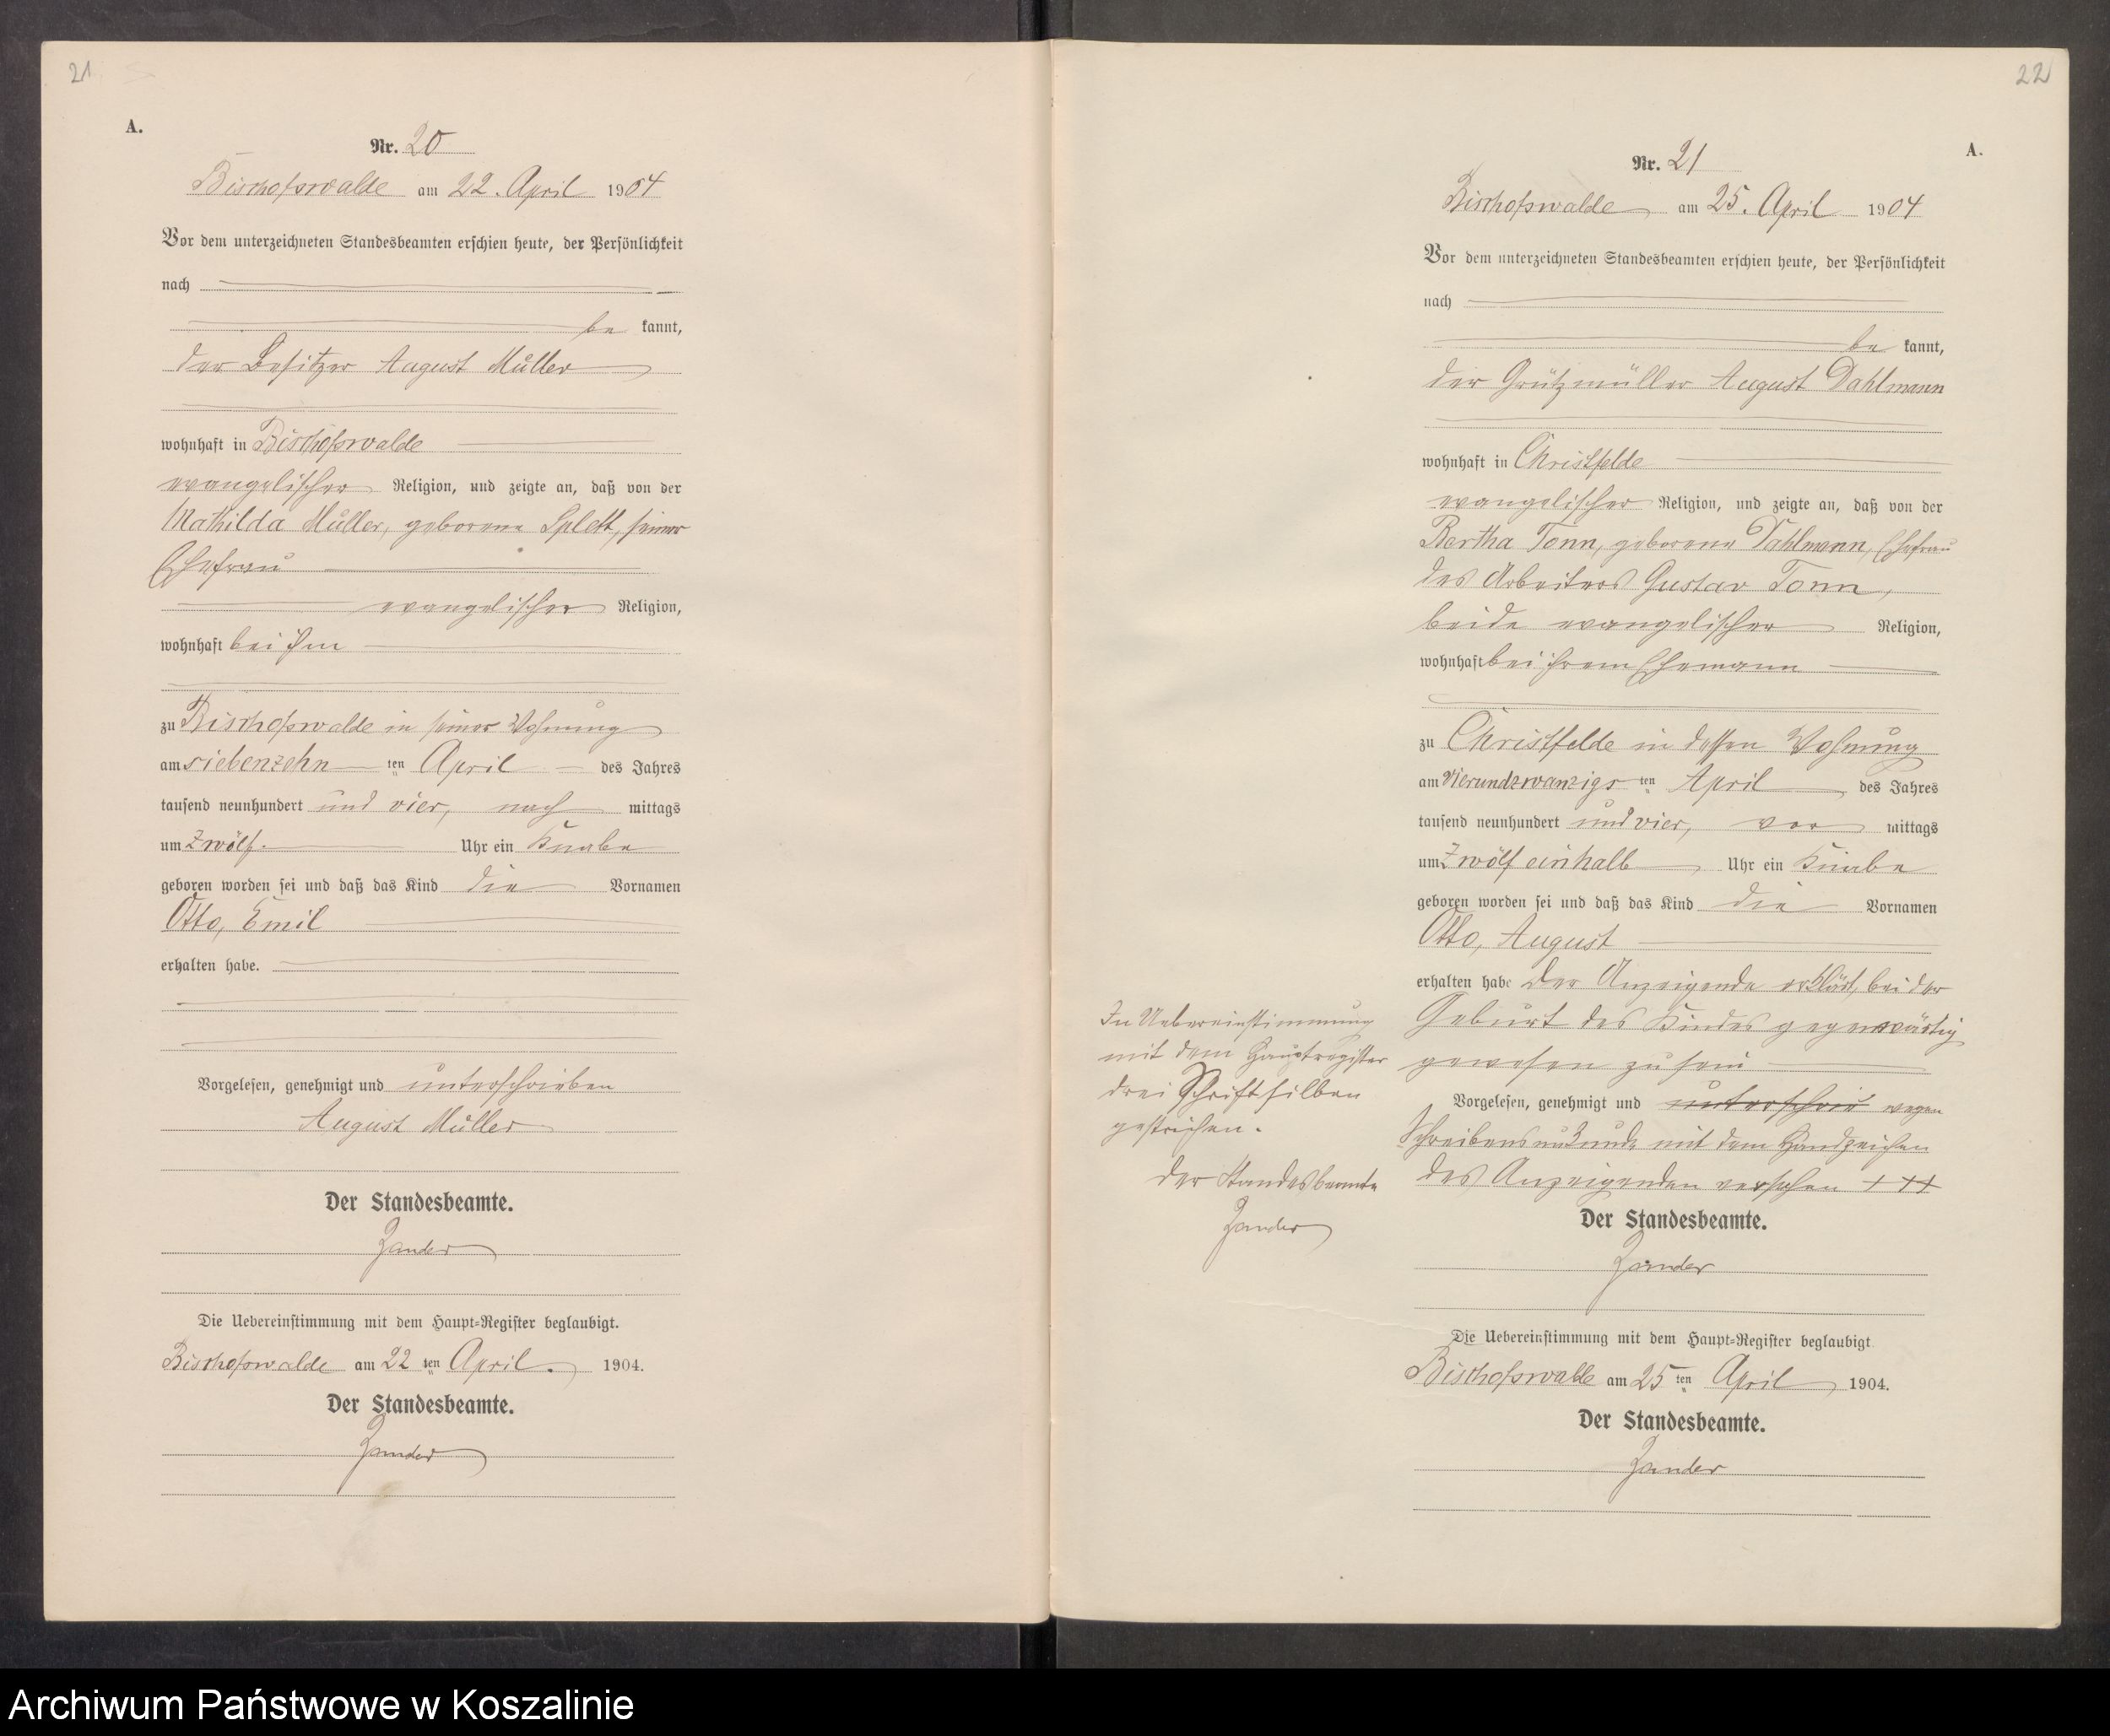 21
A.
Nr. 20
Bischofswalde am 22. April 1904
Vor dem unterzeichneten Standesbeamten erschien heute, der Persönlichkeit
nach
be kannt,
der Besitzer August Müller
wohnhaft in Bischofswalde
evangelischer Religion, und zeigte an, daß von der
Mathilda Müller, geborene Splett, seiner
Ehefrau
evangelischer Religion,
wohnhaft bei ihm
zu Bischofswalde in seiner Wohnung
am siebenzehn ten April des Jahres
tausend neunhundert und vier, nach mittags
um zwölf Uhr ein Knabe
geboren worden sei und daß das Kind die Vornamen
Otto, Emil
erhalten habe.
Vorgelesen, genehmigt und unterschrieben
August Müller
Der Standesbeamte.
Zander
Die Uebereinstimmung mit dem Haupt-Register beglaubigt.
Bischofswalde am 22 ten April. 1904.
Der Standesbeamte.
Zander
22
A.
Nr. 21
Bischofswalde am 25. April 1904
Vor dem unterzeichneten Standesbeamten erschien heute, der Persönlichkeit
nach
be kannt,
der Grützmüller August Dahlmann
wohnhaft in Christfelde
evangelischer Religion, und zeigte an, daß von der
Bertha Tonn, geborene Dahlmann, Ehefrau
des Arbeiters Gustav Tonn,
beide evangelischer Religion,
wohnhaft bei ihrem Ehemann
zu Christfelde in dessen Wohnung
am vierundzwanzigs ten April des Jahres
tausend neunhundert und vier, vor mittags
um zwölf einhalb Uhr ein Knabe
geboren worden sei und daß das Kind die Vornamen
Otto, August
erhalten habe Der Anzeigende erklärt, bei der
Geburt des Kindes gegenwärtig
gewesen zu sein
Vorgelesen, genehmigt und unterschrie wegen
Schreibensunkunde mit dem Handzeichen
des Anzeigenden versehen + + +
Der Standesbeamte.
Zander
Die Uebereinstimmung mit dem Haupt-Register beglaubigt
Bischofswalde am 25 ten April 1904.
Der Standesbeamte.
Zander
In Uebereinstimmung
mit dem Hauptregister
drei Schriftsilben
gestrichen.
Der Standesbeamte
Zander
Archiwum Państwowe w Koszalinie